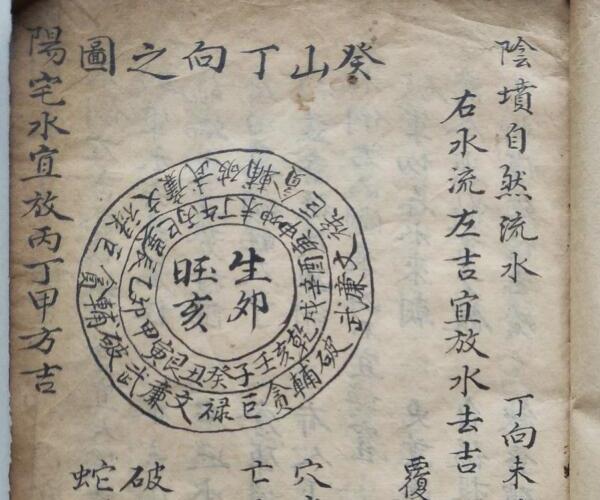 陰墳自然流水
丁向未
右水流左吉宜放水去吉
覆
癸山丁向之圖
破武廉文禄巨貪輔破武廉文禄巨貪輔破武廉文禄巨貪輔
甲寅艮丑癸子壬亥乾戌辛酉庚申坤未丁午丙巳巽辰乙卯
生卯
旺亥
穴
亡
破
蛇
陽宅水宜放丙丁甲方吉